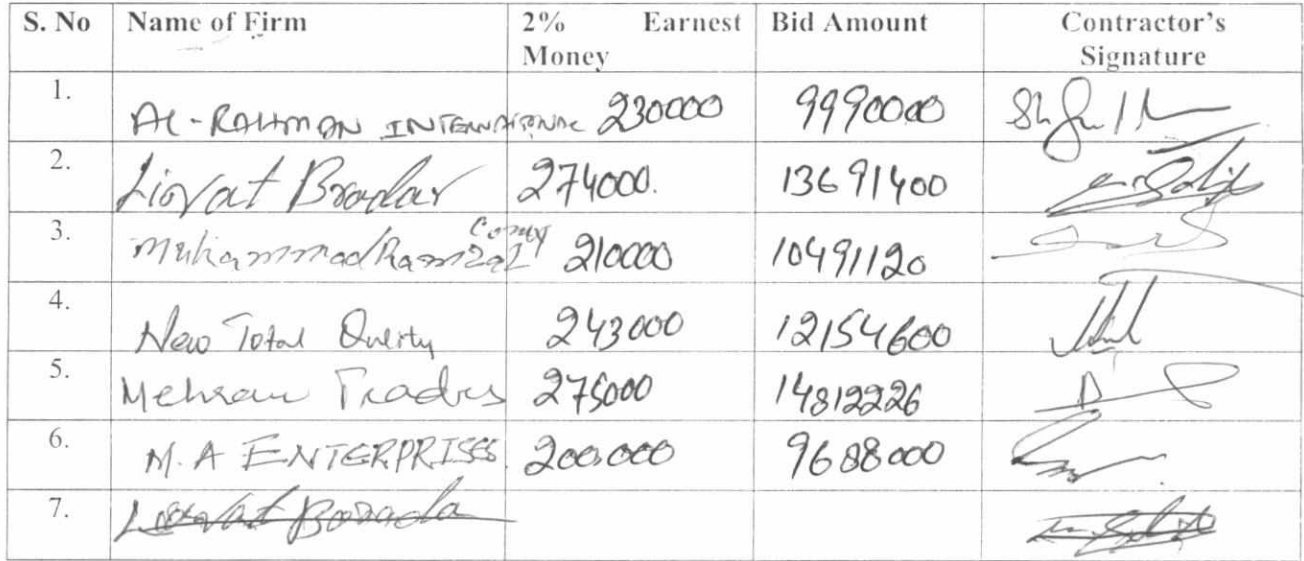 S. No Name of Firm 2% Earnest Money Bid Amount Contractor's Signature
1. AL-RAHMAN INTERNATIONAL 230000 9990000
2. Liovat Bradar 274000. 13691400
3. Muhammad Ramzal 210000 10491120
4. New Total Quality 243000 12154600
5. Mehran Traders 275000 14812226
6. M.A ENTERPRISES. 200,000 9688000
7.